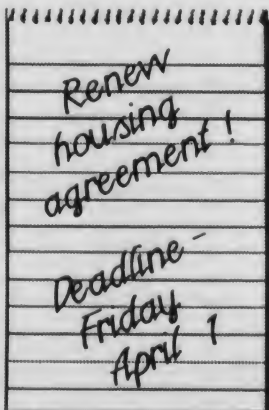 Renew
housing
agreement!
Deadline -
Friday
April 1